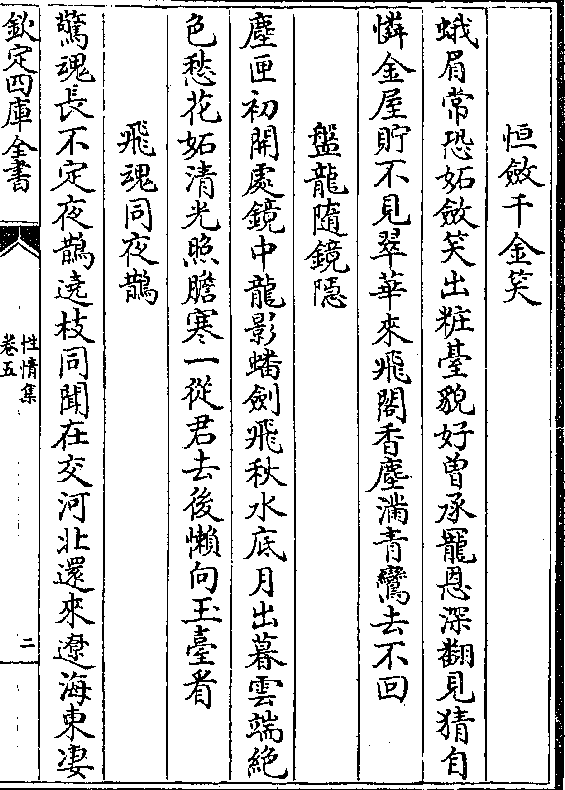 恒斂千金笑
蛾眉常恐妬斂笑出粧臺貌好曾承寵恩深翻見猜自
憐金屋貯不見翠華來飛閣香塵滿青鸞去不回
盤龍隨鏡隱
塵匣初開處鏡中龍影蟠劍飛秋水底月出暮雲端絕
色愁花妬清光照膽寒一從君去後懶向玉臺看
飛魂同夜鵲
驚魂長不定夜鵲遶枝同聞在交河北還來遼海東凄
欽定四庫全書
性情集
卷五
二